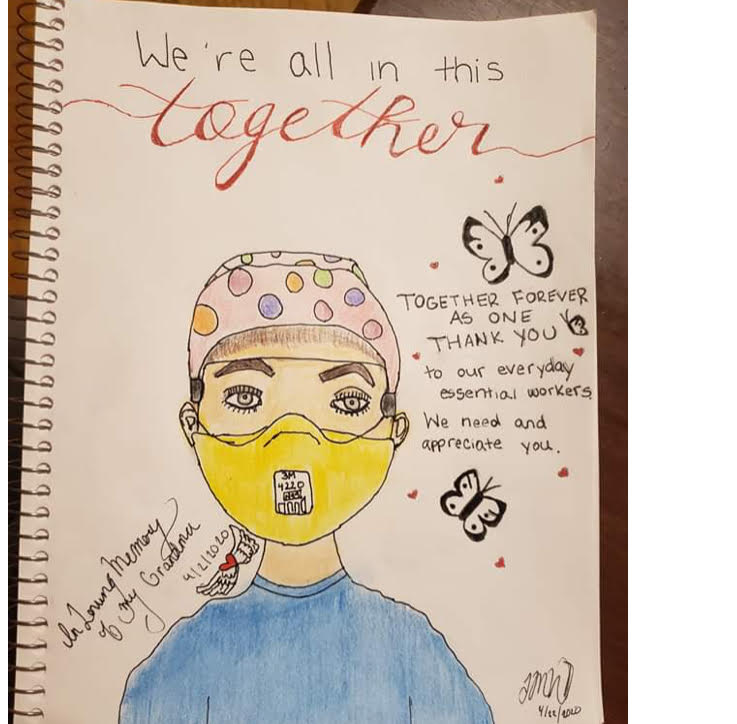 We're all in this
together
TOGETHER FOREVER
AS ONE
THANK YOU
to our everyday
essential workers.
We need and
appreciate you.
3M
4220
In Loving Memory
of my Grandma
4/2/2020
4/22/2020